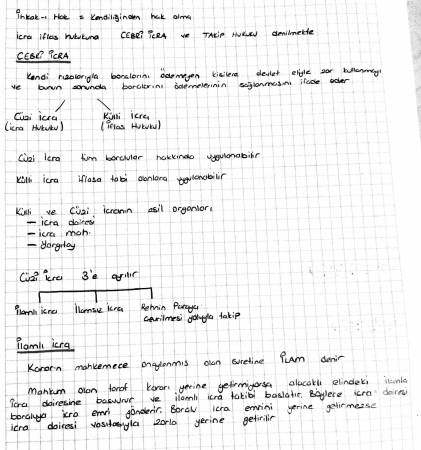 İhkak-ı Hak = Kendiliğinden hak alma
icra iflas hukukuna CEBRİ İCRA ve TAKİP HUKUKU denilmekte
CEBRİ İCRA
Kendi rızalarıyla borçlarını ödemeyen kişilere devlet eliyle zor kullanmayı
ve bunun sonunda borçlarını ödemelerinin sağlanmasını ifade eder
Cüzi icra Külli icra
(icra Hukuku) (İflas Hukuku)
Cüzi İcra tüm borçlular hakkında uygulanabilir
Külli icra iflasa tabi olanlara uygulanabilir
Külli ve Cüzi icranın asil organları
- icra dairesi
- icra mah.
- Yargıtay
Cüzi İcra 3'e ayrılır
İlamlı icra İlamsız icra Rehnin Paraya
çevrilmesi yoluyla takip
İlamlı İcra
Kararın mahkemece onaylanmış olan suretine İLAM denir
Mahkum olan taraf kararı yerine getirmiyorsa alacaklı elindeki ilamla
icra dairesine başvurur ve ilamlı icra takibi başlatır. Böylece icra dairesi
borçluya icra emri gönderir. Borçlu icra emrini yerine getirmezse
icra dairesi vasıtasıyla zorla yerine getirilir